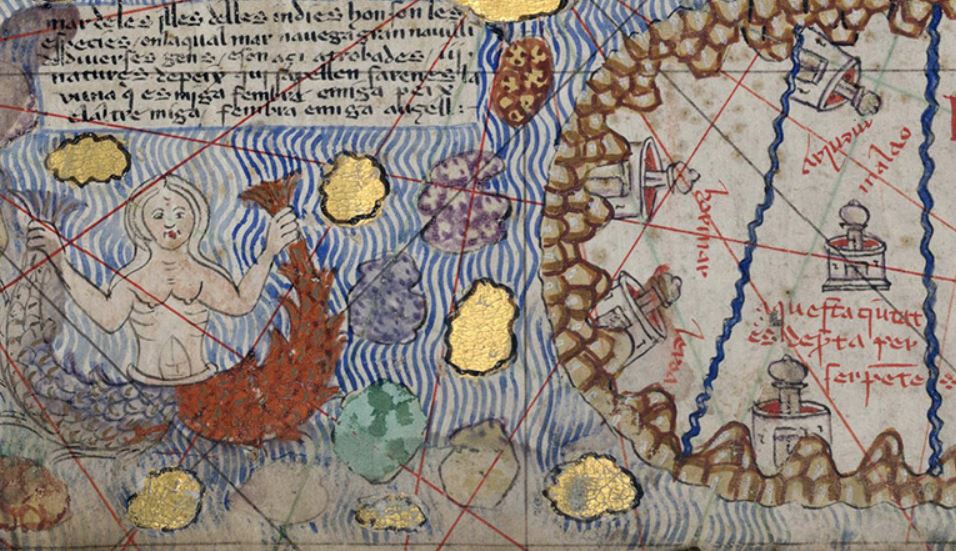 mar deles jlles delles endies hon son les
especies / enlaqual mar nauega gran nauilli
d diuerses gens / eson açi atrobades / iij
natures depeix qui sapellen sarenes / la
vuna q̃ es miga fembra emiga peix
elaltre miga fembra emiga auzell :
malao
questa çiutat
es desp̃ta per
serpẽtes